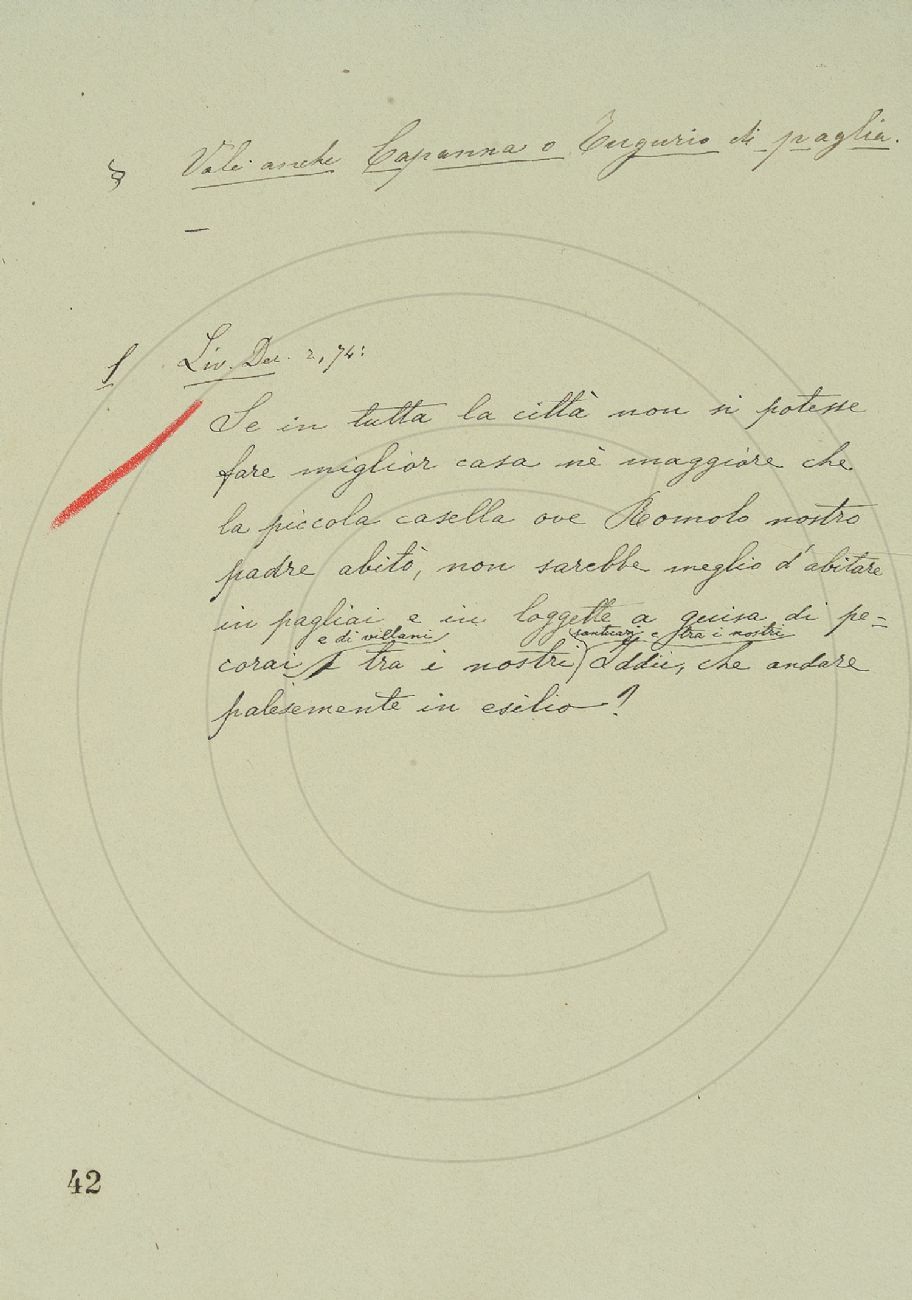 § Vale anche Capanna o Tugurio di paglia.
—
1 Liv. Dec. 2, 74:
Se in tutta la città non si potesse
fare miglior casa nè maggiore che
la piccola casella ove Romolo nostro
padre abitò, non sarebbe meglio d'abitare
in pagliai e in loggette a guisa di pe=
e di villani santuarj e tra i nostri
corai, tra i nostri Iddii, che andare
palesemente in esilio?
42